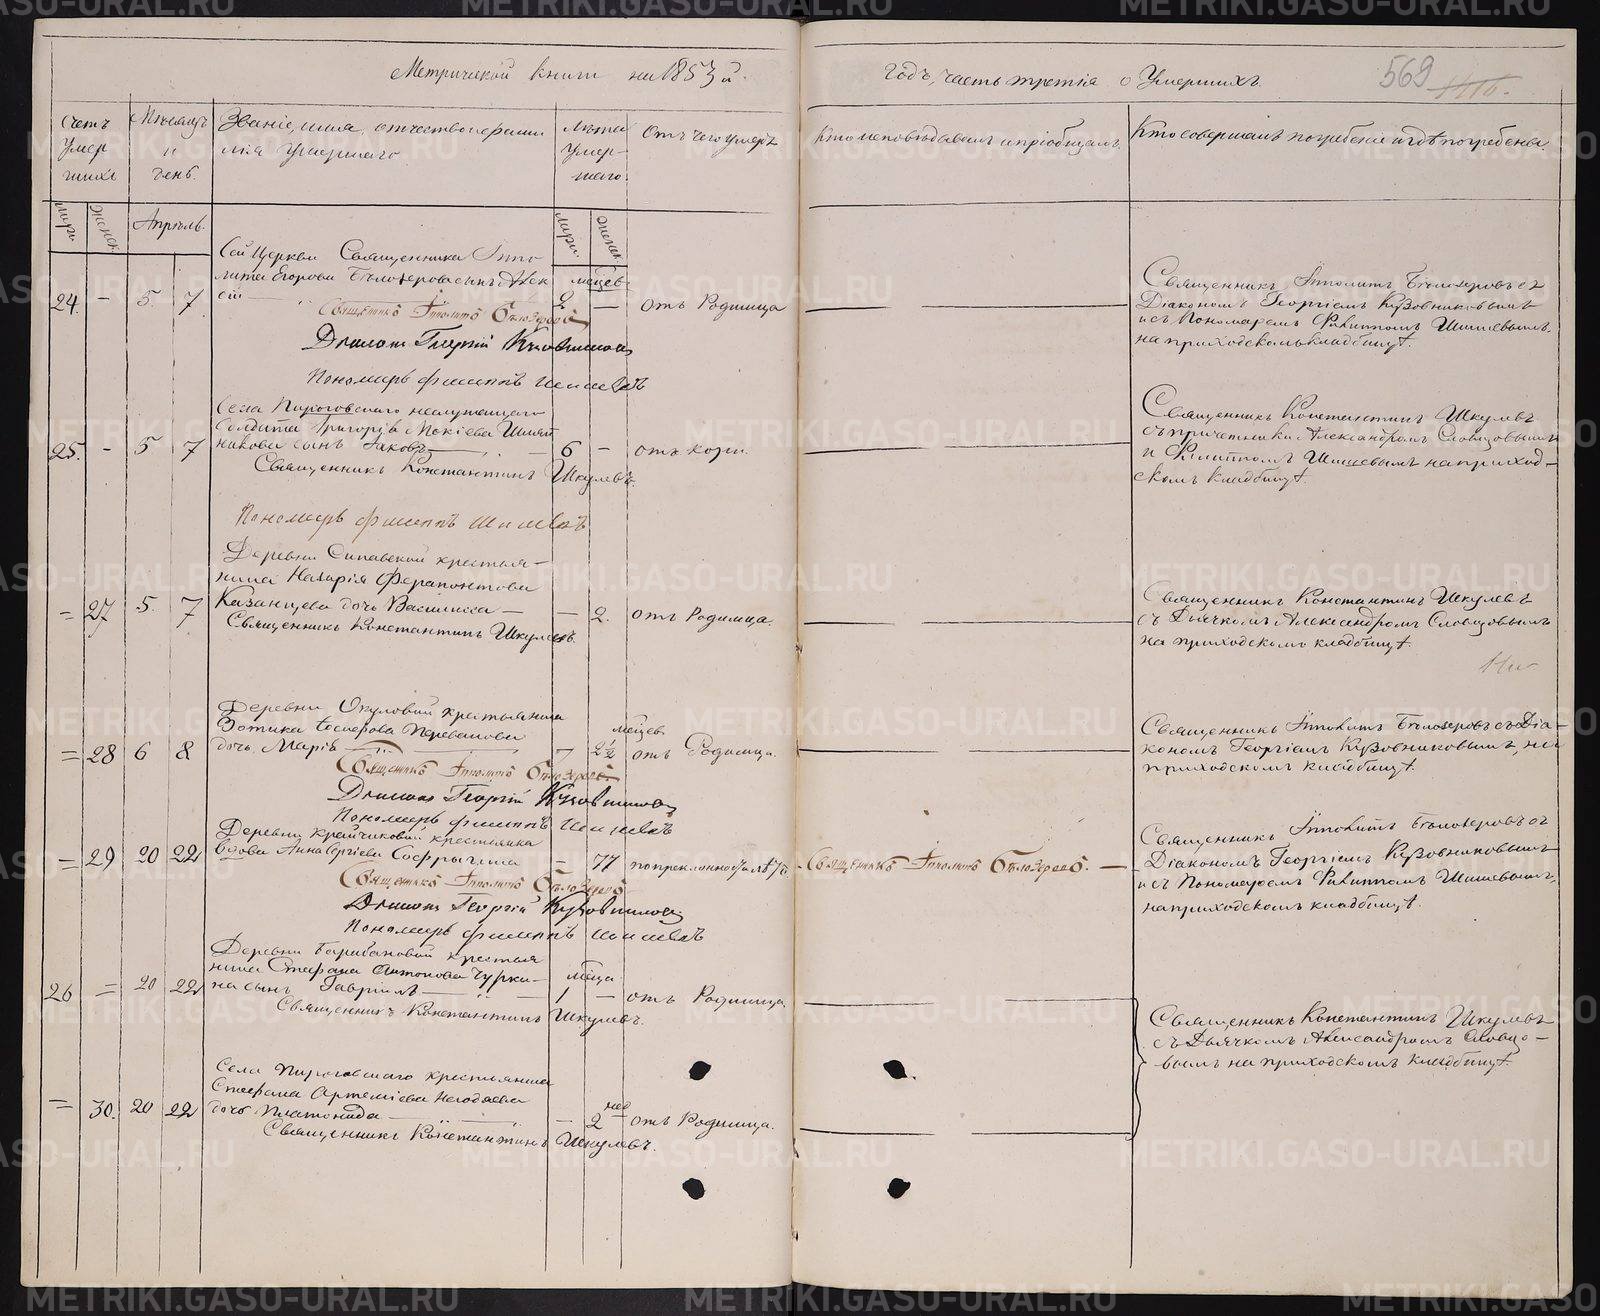 Метрической книги на 1853й
годъ, часть третія о Умершихъ.
569
Счетъ Умер шихъ
Мѣсяцъ и день.
Званіе, имя, отчество и фами
лія Умершаго.
Лѣта Умер- шаго.
Отъ чего умеръ
Кто исповѣдывалъ и пріобщалъ.
Кто совершалъ погребеніе и гдѣ погребены.
муж. женск.
Апрѣль.
муж. женск.
Сей Церкви Священника Іппо
лита Егорова Бѣлозерова сынъ Алек
сій
24 — 5 7
мѣсяцев
2 — отъ Родимца
Священникъ Ипполитъ Бѣлозеровъ
Діаконъ Георгій Кузовниковъ
Пономарь Филиппъ Шишевъ
Священникъ Іпполитъ Бѣлозеровъ съ
Діакономъ Георгіемъ Кузовниковымъ
и съ Пономаремъ Филиппомъ Шишевымъ
на приходскомъ кладбищѣ.
Села Пироговскаго неслужащаго
Солдата Григорія Мокіева
никова сынъ Іаковъ
25. — 5 7
6 — отъ кори.
Священникъ Константинъ Шкулевъ.
Пономарь Филиппъ Шишевъ
Священникъ Константинъ Шкулевъ
съ причетники Александромъ Словцовымъ
и Филиппомъ Шишевымъ на приход-
скомъ кладбищѣ.
Деревни Сипавской крестья-
нина Назарія Ферапонтова
Казанцева дочь Василиса —
= 27 5. 7
— 2. отъ Родимца.
Священникъ Константинъ Шкулевъ.
Священникъ Константинъ Шкулевъ
съ Дьячкомъ Александромъ Словцовымъ
на приходскомъ кладбищѣ.
Деревни Окуловой крестьянина
Зотика Іосифова Переванова
дочь Марія
= 28 6 8
мѣсяцев
2½ отъ Родимца.
Священникъ Ипполитъ Бѣлозеровъ
Діаконъ Георгій Кузовниковъ
Пономарь Филиппъ Шишевъ
Священникъ Іпполитъ Бѣлозеровъ съ Діа-
кономъ Георгіемъ Кузовниковымъ, на
приходскомъ кладбищѣ.
Деревни Крайчиковой крестьянка
Вдова Анна Сергіева Софрыгина
= 29 20 22
— 77 по преклонности лѣтъ
Священникъ Ипполитъ Бѣлозеровъ. —
Священникъ Ипполитъ Бѣлозеровъ
Діаконъ Георгій Кузовниковъ
Пономарь Филиппъ Шишевъ
Священникъ Іпполитъ Бѣлозеровъ съ
Діакономъ Георгіемъ Кузовниковымъ
и съ Пономаремъ Филиппомъ Шишевымъ,
на приходскомъ кладбищѣ.
Деревни Барабановой крестья
нина Стефана Антонова Чурки-
на сынъ Гавріилъ
26 = 20 22
мѣсяца
1 — отъ Родимца.
Священникъ Константинъ Шкулевъ.
Священникъ Константинъ Шкулевъ
съ Дьячкомъ Александромъ Словцо-
вымъ на приходскомъ кладбищѣ.
Села Пироговскаго крестьянина
Стефана Артеміева Негодяева
дочь Платонида
= 30. 20 22
нед
— 2 отъ Родимца.
Священникъ Константинъ Шкулевъ.
METRIKI.GASO-URAL.RU